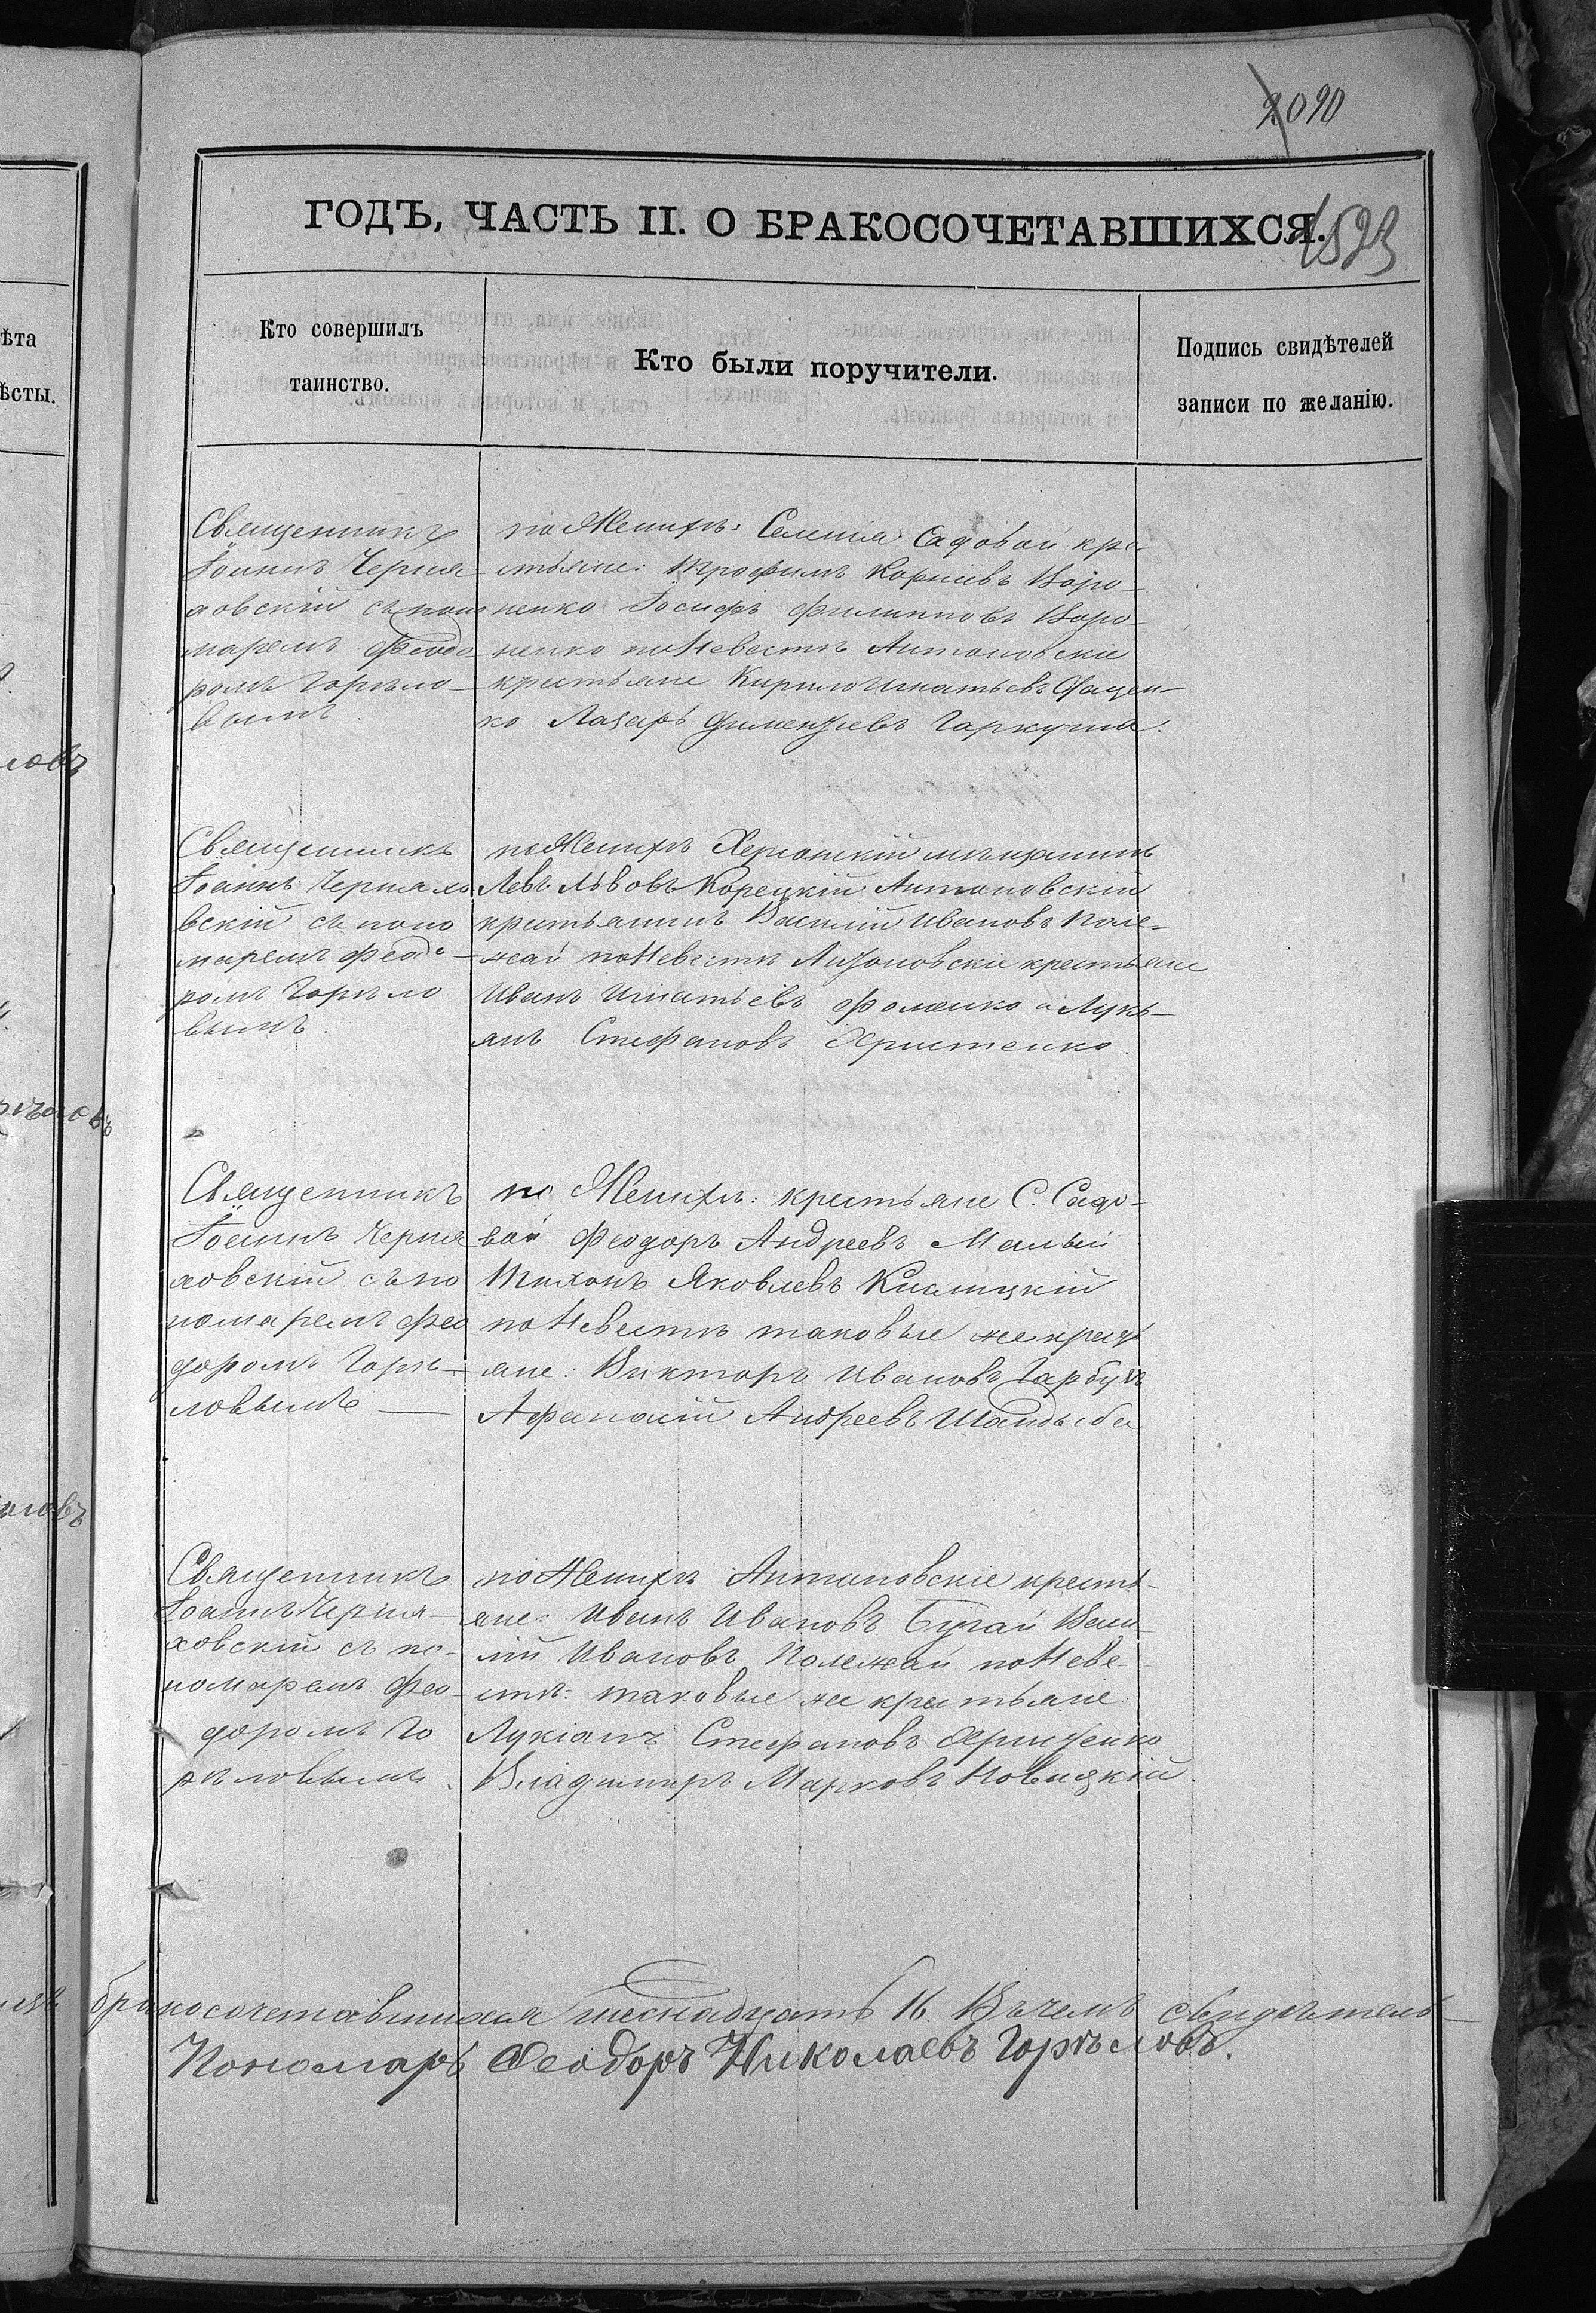 2090
ГОДЪ, ЧАСТЬ II. О БРАКОСОЧЕТАВШИХСЯ.
1523
ѣта
ѣсты.
Кто совершилъ
таинство.
Кто были поручители.
Подпись свидѣтелей
записи по желанію.
Священникъ
Іоаннъ Черня-
ховскій съ поно
маремъ Феодо
ромъ Горѣло-
вымъ
по Женихѣ: Селенія Садовой кре-
стьяне: Трофимъ Корніевъ Воро-
ненко Іосифъ Филипповъ Воро-
ненко по Невѣстѣ Антоновскіе
крестьяне Кирило Игнатьевъ
ко Лазарь Гаркуша.
Священникъ
Іоаннъ Черняхо
вскій съ поно
маремъ Феодо-
ромъ Горѣло
вымъ.
по Женихѣ Херсонскій мѣщанинъ
Левъ Львовъ Корецкій Антоновскій
крестьянинъ Василій Ивановъ Поле-
жай по Невѣстѣ Антоновскіе крестьяне
Иванъ Игнатьевъ Фоменко и Лукь-
янъ Стефановъ Христенко.
Священникъ
Іоаннъ Черня
ховскій съ по
номаремъ Фео
доромъ Горѣ-
ловымъ
по Женихѣ: крестьяне С. Садо-
вой Феодоръ Андреевъ Малый
Тихонъ Яковлевъ
по Невѣстѣ таковые же крестя
яне: Викторъ Ивановъ Гарбузъ
Афанасій Андреевъ Шандыба
Священникъ
Іоаннъ Черня-
ховскій съ по-
номаремъ Фео-
доромъ Го
рѣловымъ.
по Женихѣ Антоновскіе кресть-
яне: Иванъ Ивановъ Бугай Васи-
лій Ивановъ Полежай по Неве-
стѣ: таковые же крестьяне
Лукіанъ Стефановъ Христенко
Владимиръ Марковъ Новицкій.
бракосочетавшихся шеснадцать 16. Въ чемъ свидѣтель-
Пономарь Феодоръ Николаевъ Горѣловъ.